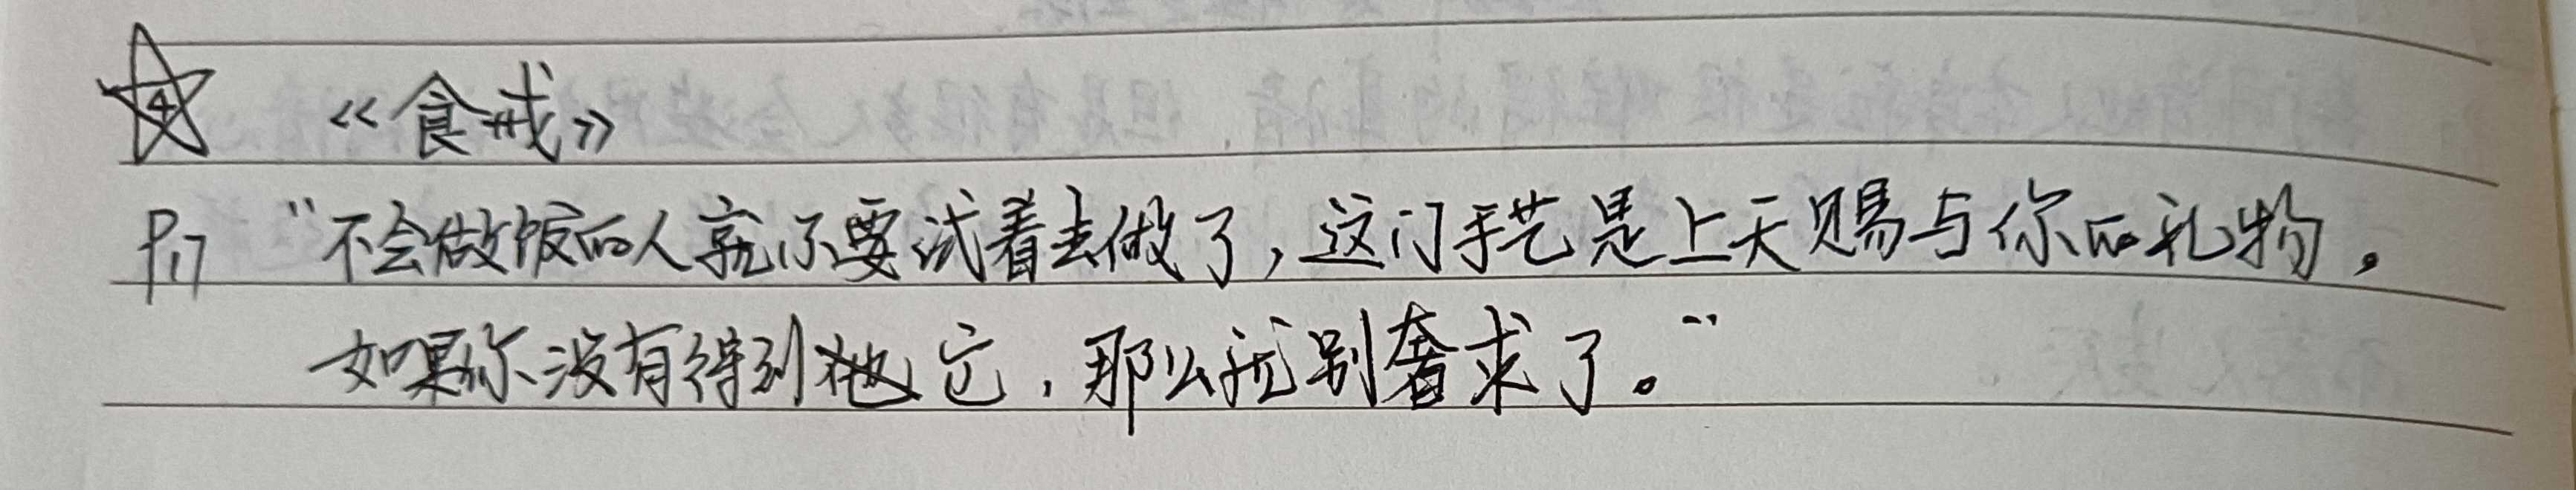 4 《食戒》
P17 "不会做饭的人就不要试着去做了，这门手艺是上天赐与你的礼物。
如果你没有得到它，那么就别奢求了。"